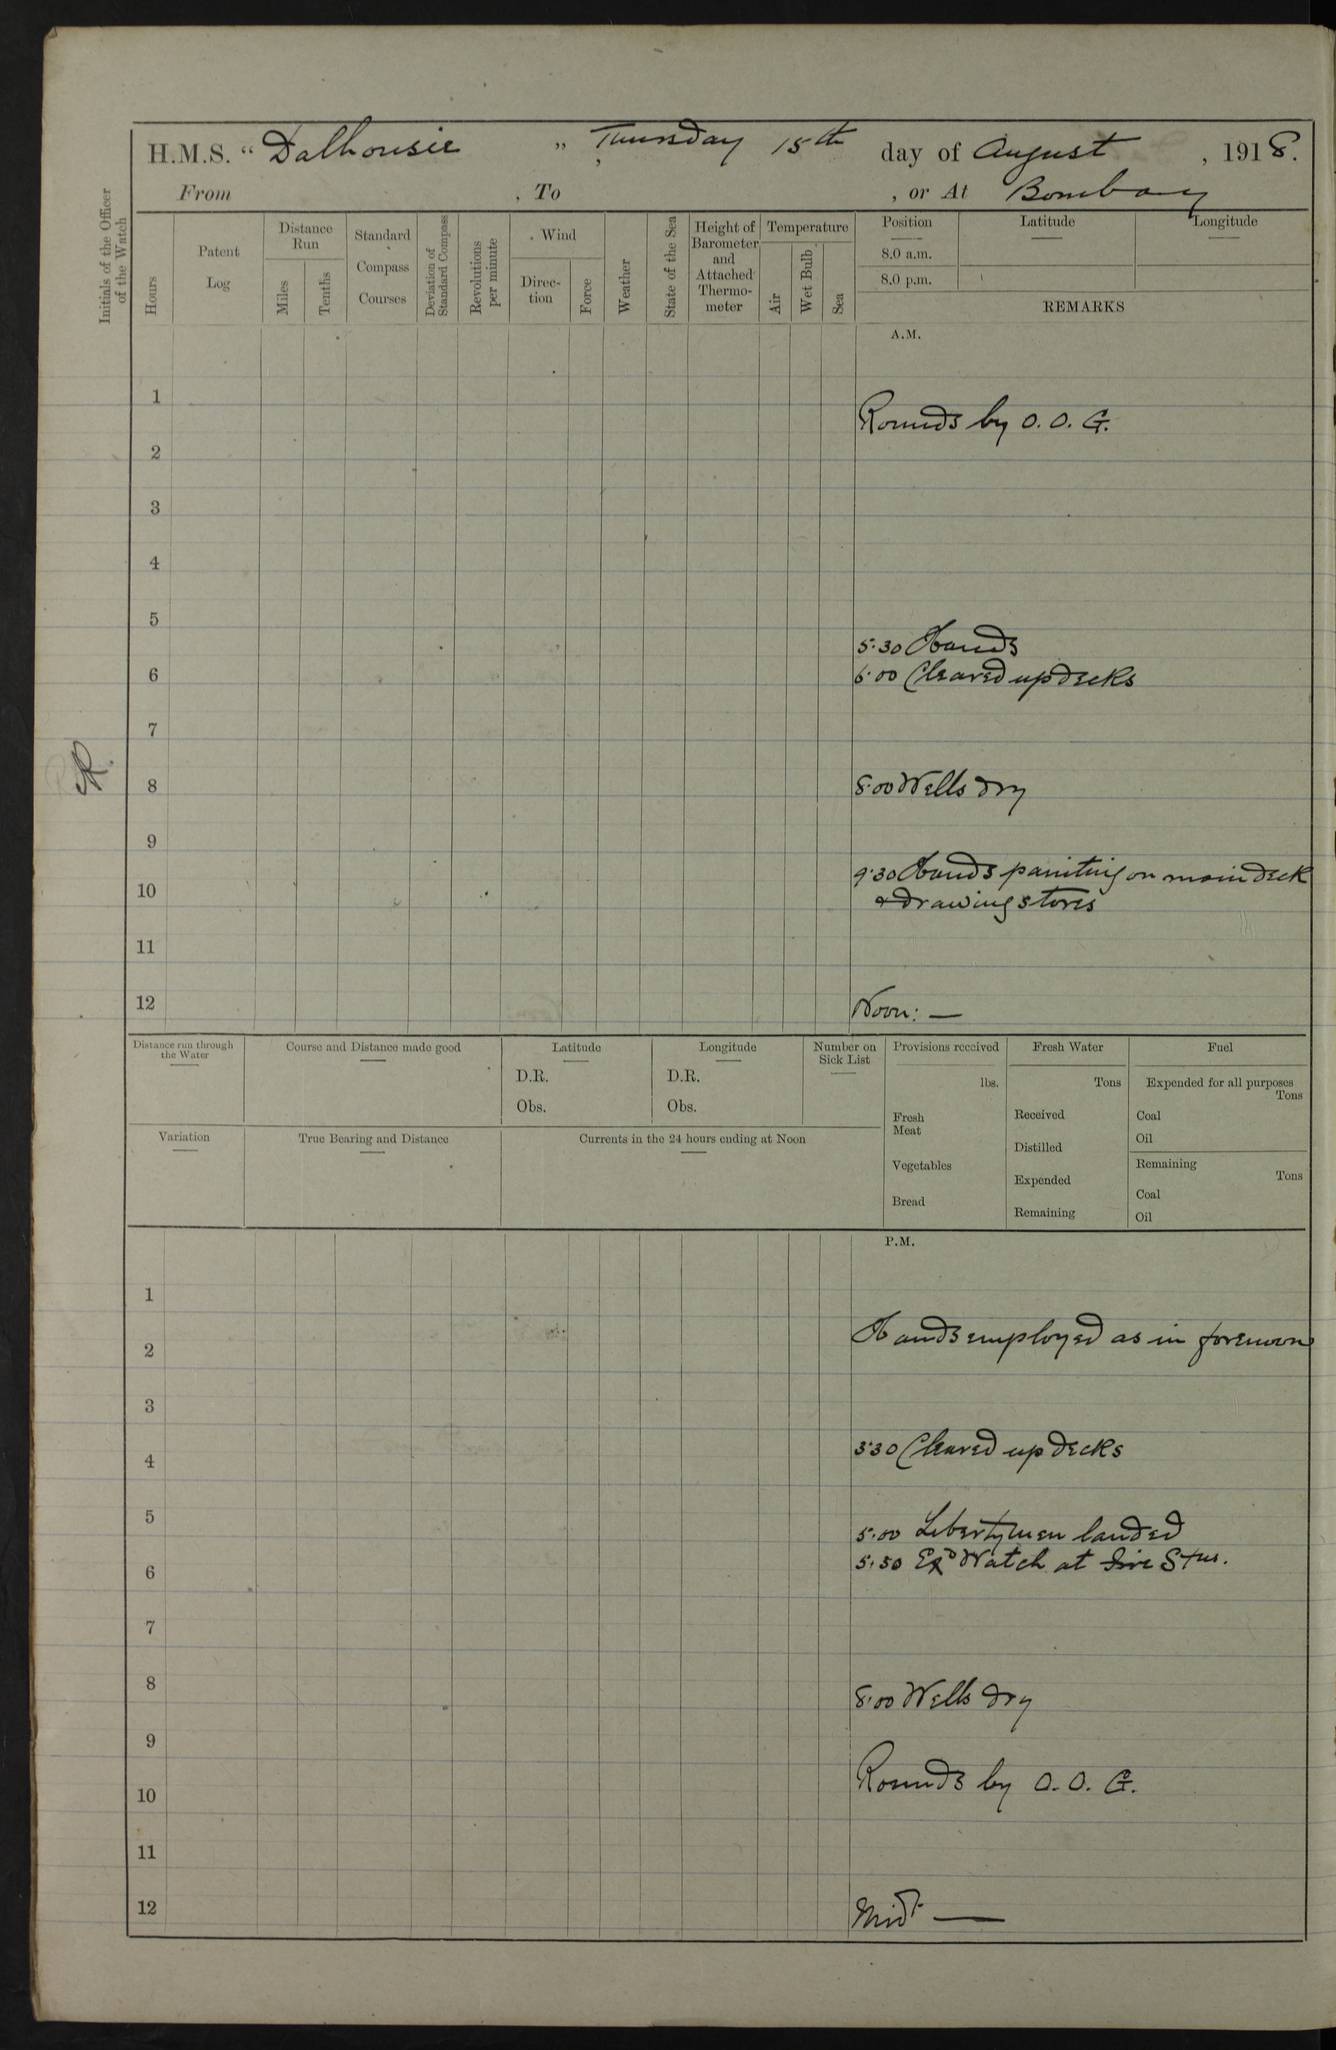 H.M.S. "Dalhousie" Thursday 15th day of August, 1918.
From , To , or At Bombay
Initials of the Officer of the Watch
Hours
Patent Log
Distance Run
Miles
Tenths
Standard Compass Courses
Deviation of Standard Compass
Revolutions per minute
Wind
Direction
Force
Weather
State of the Sea
Height of Barometer and Attached Thermometer
Temperature
Air
Wet Bulb
Sea
Position Latitude Longitude
8.0 a.m.
8.0 p.m.
REMARKS
A.M.
1
Rounds by O. O. G.
2
3
4
5
5.30 Hands
6
6.00 Cleared up decks
7
8
8.00 Wells dry
9
9.30 Hands painting on main deck
10
& drawing stores
11
12
Noon: —
Distance run through the Water
Course and Distance made good
Latitude
D.R.
Obs.
Longitude
D.R.
Obs.
Number on Sick List
Provisions received
lbs.
Fresh Meat
Vegetables
Bread
Fresh Water
Tons
Received
Distilled
Expended
Remaining
Fuel
Expended for all purposes
Tons
Coal
Oil
Remaining
Tons
Coal
Oil
Variation
True Bearing and Distance
Currents in the 24 hours ending at Noon
P.M.
1
Hands employed as in forenoon
2
3
3.30 Cleared up decks
4
5
5.00 Libertymen landed
5.50 Exd Watch at Fire Stns.
6
7
8
8.00 Wells dry
9
Rounds by O. O. G.
10
11
12
Midt —